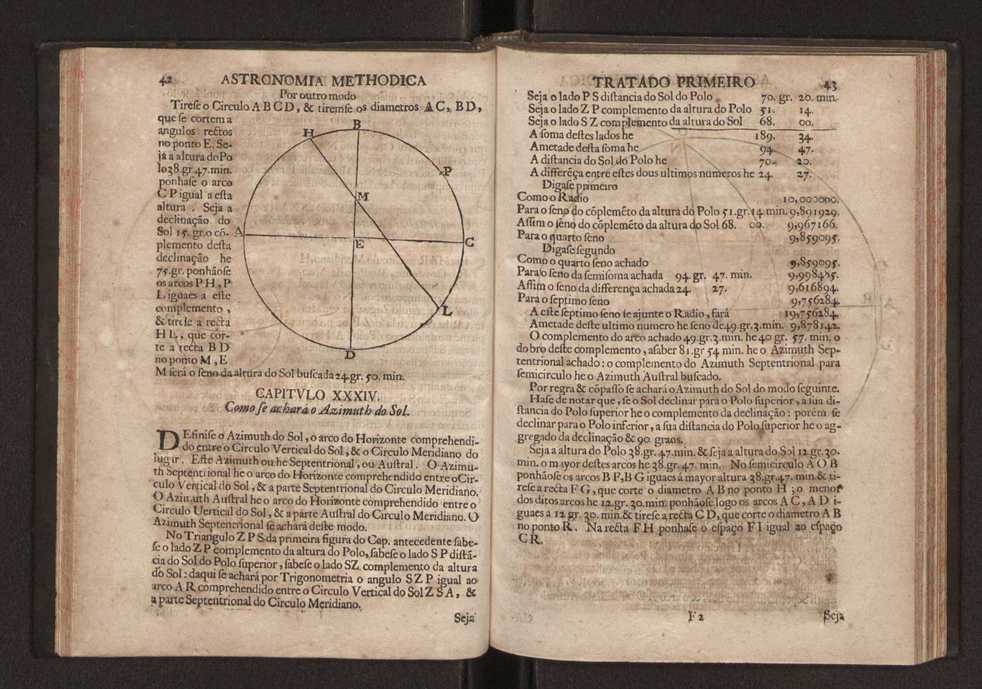 42 ASTRONOMIA METHODICA
Por outro modo
Tireſe o Circulo A B C D, & tiremſe os diametros A C, B D,
que ſe cortem a
angulos rectos
no ponto E. Se-
ja a altura do Po
lo 38 gr. 47. min.
ponhaſe o arco
C P igual a eſta
altura. Seja a
declinação do
Sol 15. gr. o cõ-
plemento deſta
declinação he
75. gr. ponhãoſe
os arcos P H, P
L iguaes a eſte
complemento,
& tireſe a recta
H L, que cor-
te a recta B D
no ponto M, E
M ſerá o ſeno da altura do Sol buſcada 24. gr. 50. min.
H
B
P
M
A
E
C
L
D
CAPITVLO XXXIV.
Como ſe achará o Azimuth do Sol.
DEfiniſe o Azimuth do Sol, o arco do Horizonte comprehendi-
do entre o Circulo Vertical do Sol, & o Circulo Meridiano do
lugir. Eſte Azimuth ou he Septentrional, ou Auſtral. O Azimu-
th Septentrional he o arco do Horizonte comprehendido entre o Cir-
culo Vertical do Sol, & a parte Septentrional do Circulo Meridiano.
O Azimuth Auſtral he o arco do Horizonte comprehendido entre o
Circulo Uertical do Sol, & a parte Auſtral do Circulo Meridiano. O
Azimuth Septencrional ſe achará deſte modo.
No Triangulo Z P S da primeira figura do Cap. antecedente ſabe-
ſe o lado Z P complemento da altura do Polo, ſabeſe o lado S P diſtã-
cia do Sol do Polo ſuperior, ſabeſe o lado SZ complemento da altura
do Sol: daqui ſe achará por Trigonometria o angulo S Z P igual ao
arco A R comprehendido entre o Circulo Vertical do Sol Z S A, &
a parte Septentrional do Circulo Meridiano.
Seja
TRATADO PRIMEIRO 43
Seja o lado P S diſtancia do Sol do Polo 70. gr. 20. min.
Seja o lado Z P complemento da altura do Polo 51. 14.
Seja o lado S Z complemento da altura do Sol 68. 00.
A ſoma deſtes lados he 189. 34.
Ametade deſta ſoma he 94. 47.
A diſtancia do Sol do Polo he 70. 20.
A differẽça entre eſtes dous ultimos numeros he 24. 27.
Digaſe primeiro
Como o Radio 10,000000.
Para o ſeno do cõplemẽto da altura do Polo 51. gr. 14. min. 9,891929.
Aſſim o ſeno do cõplemẽto da altura do Sol 68. 00. 9,967166.
Para o quarto ſeno 9,859095.
Digaſe ſegundo
Como o quarto ſeno achado 9,859095.
Para o ſeno da ſemiſoma achada 94. gr. 47. min. 9,998485.
Aſſim o ſeno da differença achada 24. 27. 9,616894.
Para o ſeptimo ſeno 9,756284.
A eſte ſeptimo ſeno ſe ajunte o Radio, fará 19,756284.
Ametade deſte ultimo numero he ſeno de 49. gr. 3. min. 9,878142.
O complemento do arco achado 49. gr. 3. min. he 40 gr. 57. min. o
dobro deſte complemento, aſaber 81. gr 54 min. he o Azimuth Sep-
tentrional achado: o complemento do Azimuth Septentrional para
ſemicirculo he o Azimuth Auſtral buſcado.
Por regra & cõpaſſo ſe achará o Azimuth do Sol do modo ſeguinte.
Haſe de notar que, ſe o Sol declinar para o Polo ſuperior, a ſua di-
ſtancia do Polo ſuperior he o complemento da declinação: porém ſe
declinar para o Polo inferior, a ſua diſtancia do Polo ſuperior he o ag-
gregado da declinação & 90. graos.
Seja a altura do Polo 38. gr. 47. min. & ſeja a altura do Sol 12. gr. 30.
min. o mayor deſtes arcos he 38. gr. 47. min. No ſemicirculo A O B
ponhãoſe os arcos B P, B G iguaes á mayor altura 38. gr. 47. min. & ti-
reſe a recta F G, que corte o diametro A B no ponto H; o menor
dos ditos arcos he 12. gr. 30. min. ponhãoſe logo os arcos A C, A D i-
guaes a 12 gr. 30. min. & tireſe a recta C D, que corte o diametro A B
no ponto R. Na recta F H ponhaſe o eſpaço F I igual ao eſpaço
C R.
F 2
Seja